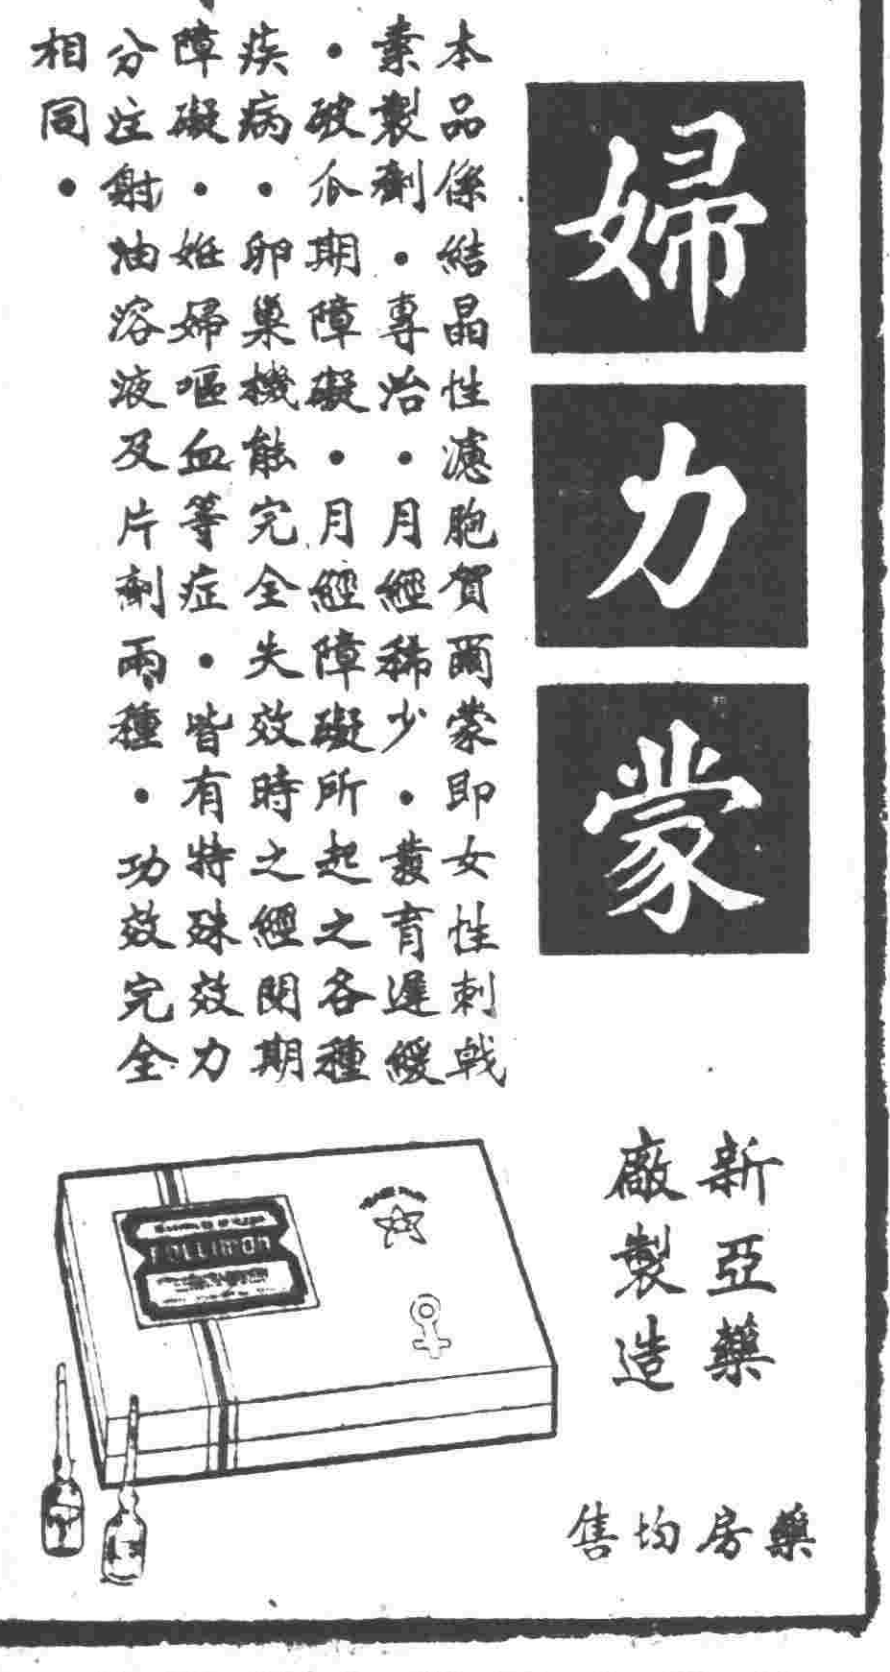 婦力蒙
本品係結晶性濾胞賀爾蒙即女性刺戟
素製劑・專治・月經稀少・發育遲緩
・破瓜期障礙・月經障礙所起之各種
疾病・卵巢機能完全失效時之經閉期
障礙・姙婦嘔血等症・皆有特殊效力
分注射油溶液及片劑兩種・功效完全
相同・
新亞藥
廠製造
藥房均售